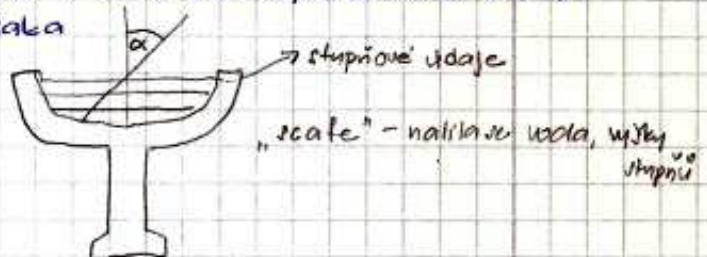 α
stupňové údaje
"scafe" - nalila se voda, výšky
stupňů